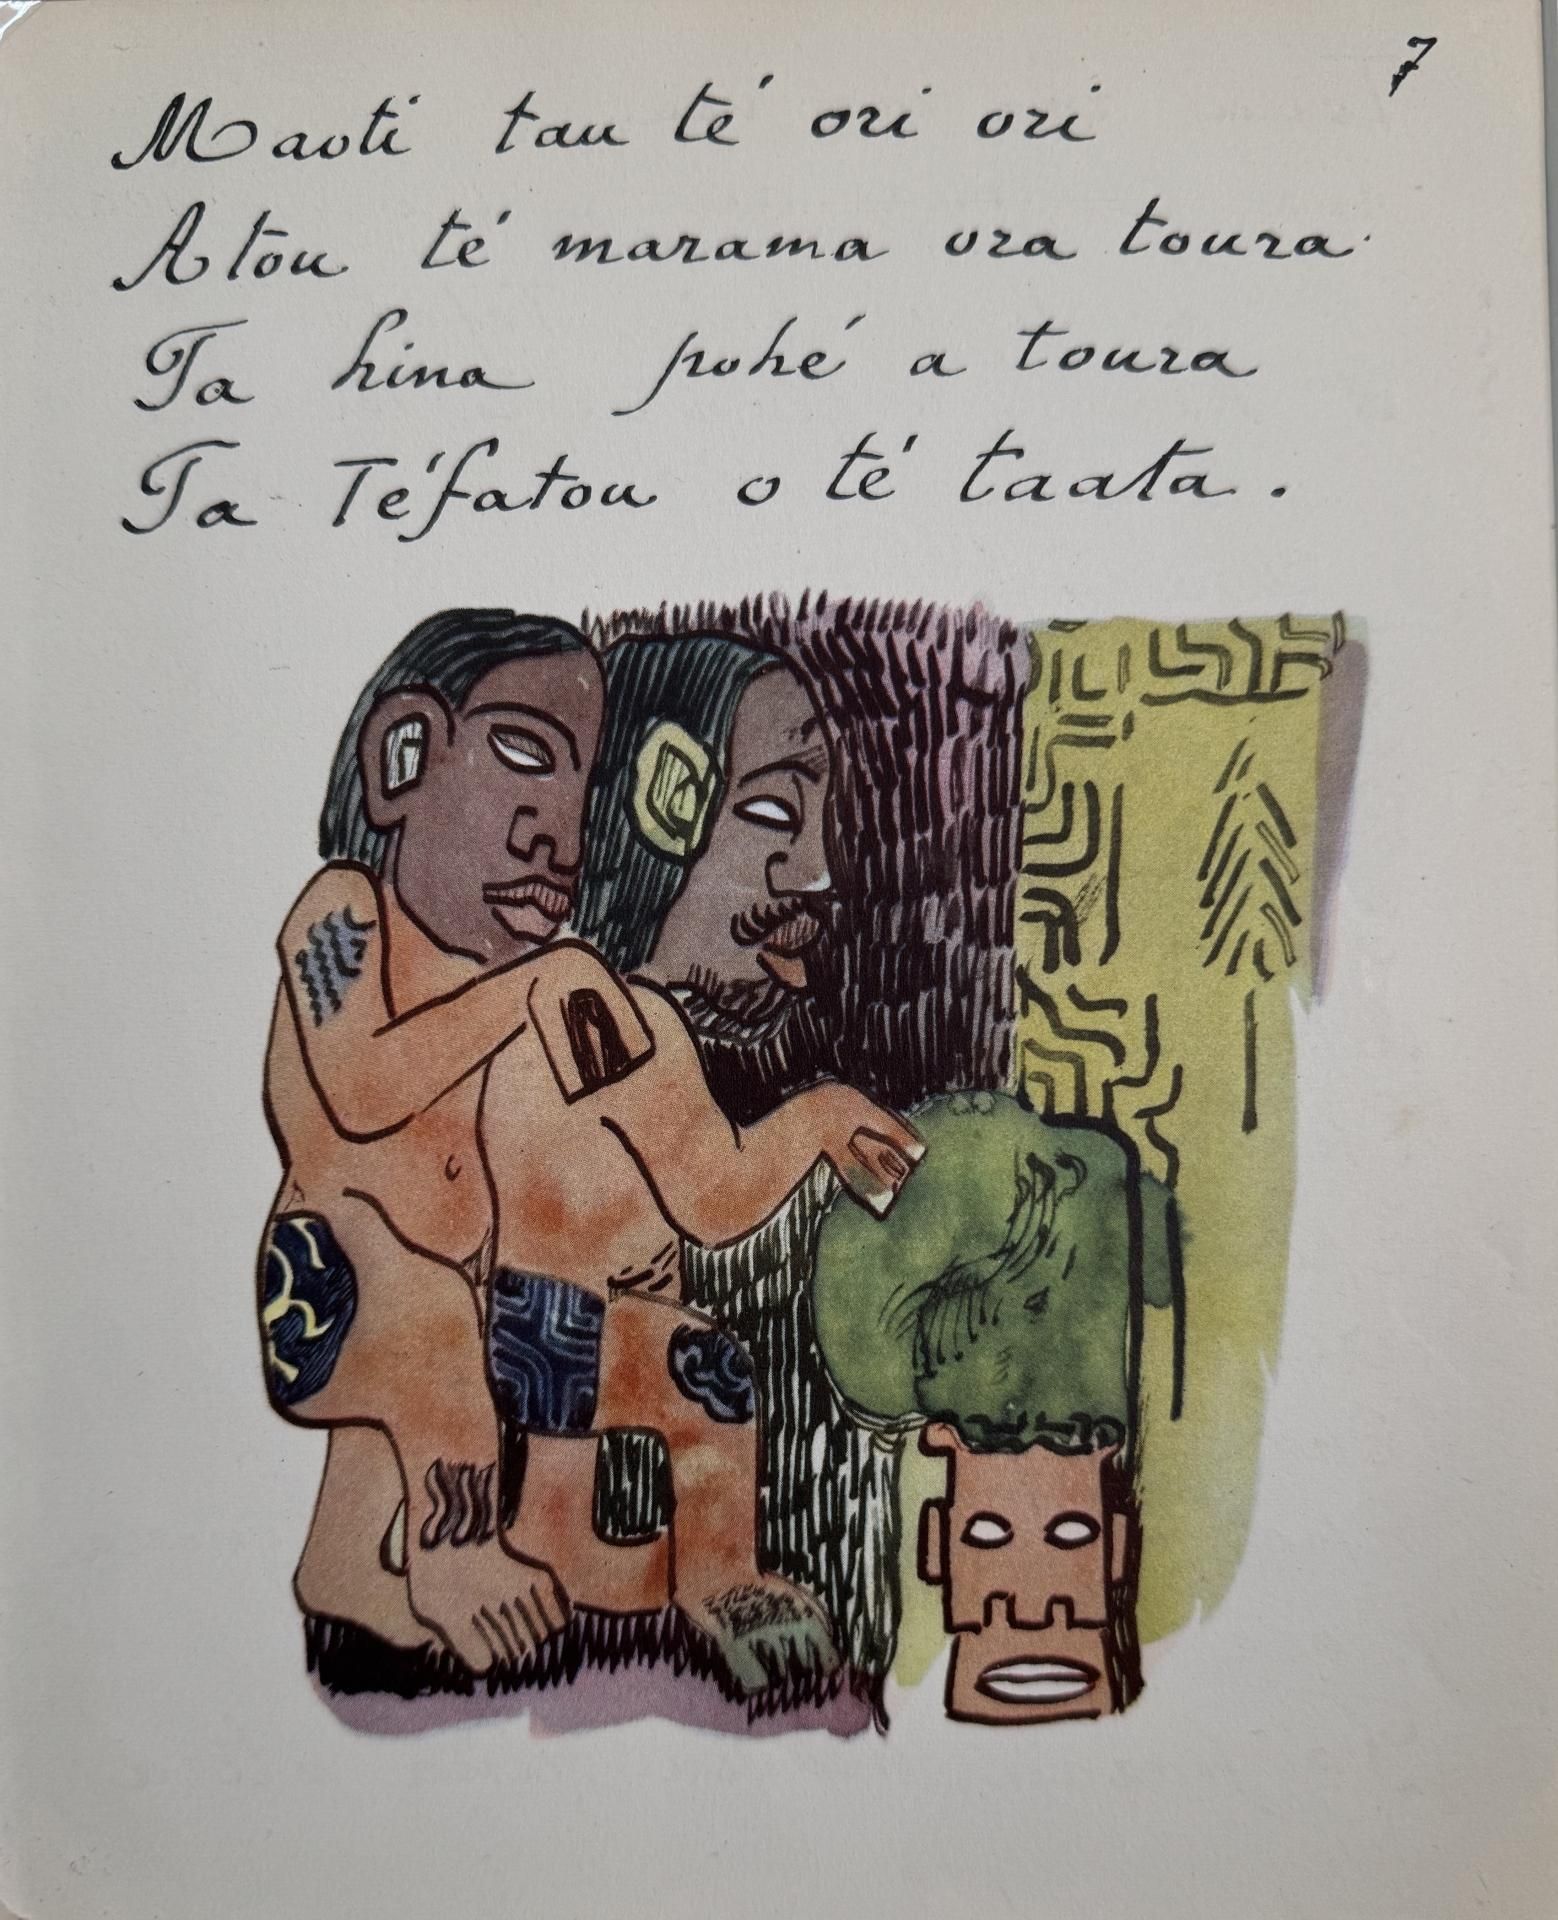 7
Maoti tau té ori ori
Atou té marama ora toura.
Ta hina pohé a toura
Ta Téfatou o té taata.